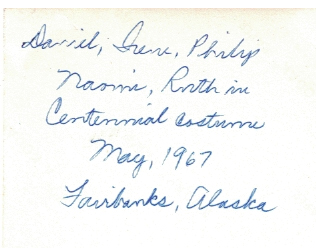 Daniel, Irene, Philip
Naomi, Ruth in
Centennial costume
May, 1967
Fairbanks, Alaska